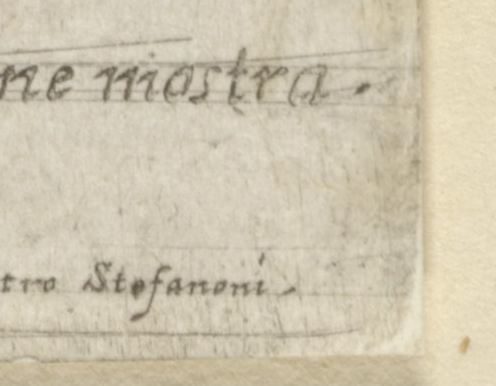 ne mostra.
tro Stefanoni.